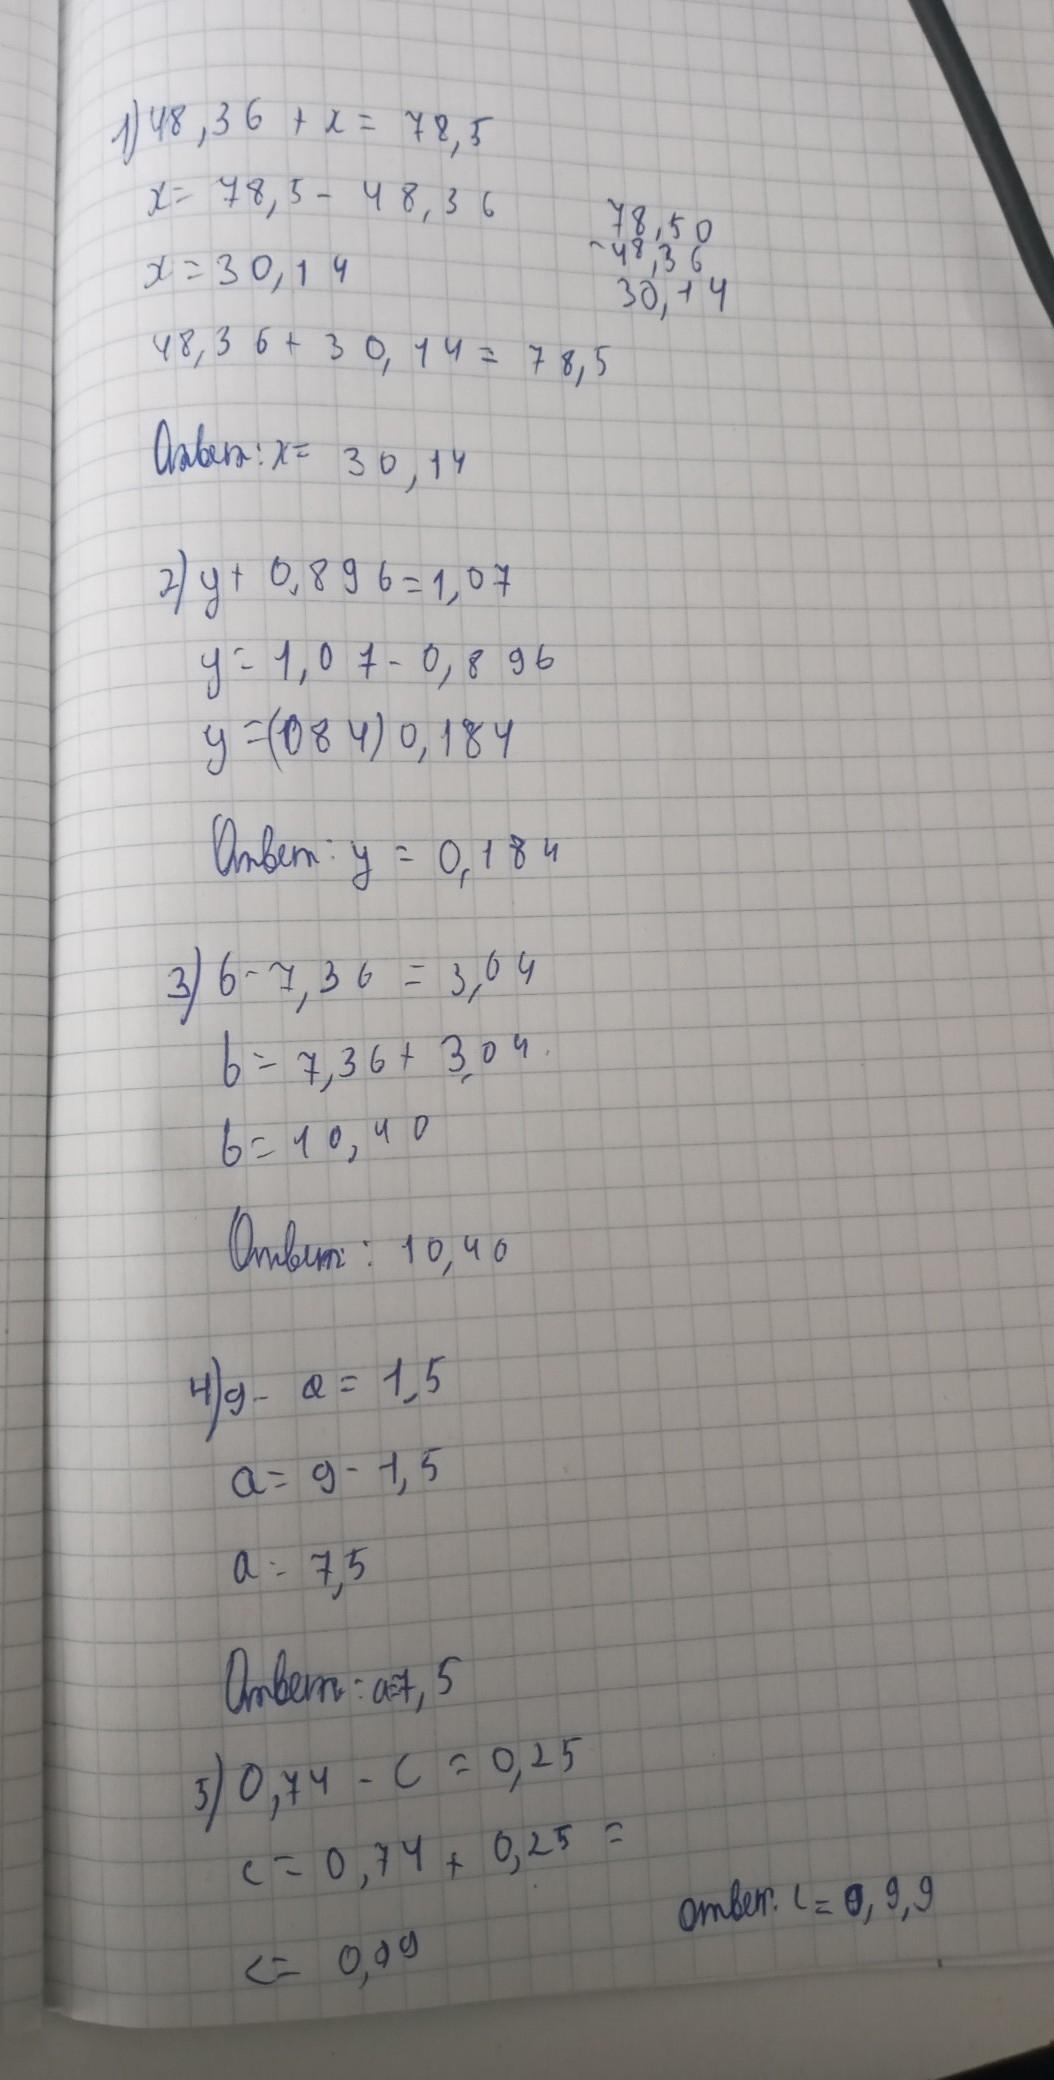 1) 48,36 + x = 78,5
x = 78,5 - 48,36
78,50
- 48,36
30,14
x = 30,14
48,36 + 30,14 = 78,5
Ответ: x = 30,14
2) y + 0,896 = 1,07
y = 1,07 - 0,896
y = (084) 0,184
Ответ: y = 0,184
3) b - 7,36 = 3,04
b = 7,36 + 3,04
b = 10,40
Ответ: 10,40
4) 9 - a = 1,5
a = 9 - 1,5
a = 7,5
Ответ: a=7,5
5) 0,74 - c = 0,25
c = 0,74 + 0,25 =
c = 0,99
Ответ: c = 0,9,9